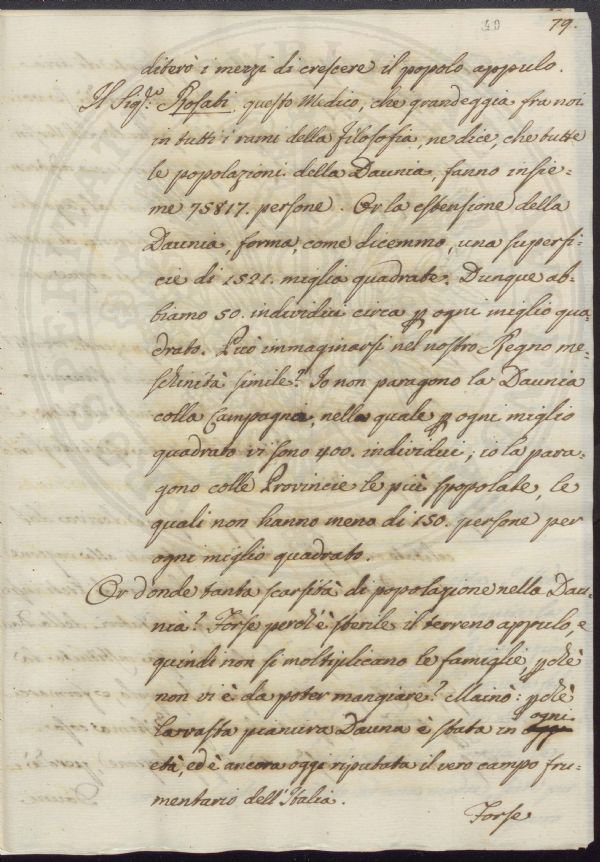 50 79.
diterò i mezzi di crescere il popolo appulo.
Il Sig.r Rosati, questo Medico, che grandeggia fra noi
in tutti i rami della filosofia, ne dice, che tutte
le popolazioni della Daunia, fanno insie=
me 75817. persone. Or la estensione della
Daunia, forma, come dicemmo, una superfi=
cie di 1521. miglia quadrate. Dunque ab=
biamo 50. individui circa p ogni miglio qua=
drato. Può immaginarsi nel nostro Regno me=
schinità simile? Io non paragono la Daunia
colla Campagna, nella quale p ogni miglio
quadrato vi sono 400. individui; io la para=
gono colle Provincie le più spopolate, le
quali non hanno meno di 150. persone per
ogni miglio quadrato.
Or d'onde tanta scarsità di popolazione nella Dau=
nia? Forse perch'è sterile il terreno appulo, e
quindi non si moltiplicano le famiglie, pchè
non vi è da poter mangiare? Mainò: pchè
la vasta pianura Dauna è stata in ogni
età, ed è ancora oggi riputata il vero campo fru=
mentario dell'Italia.
Forse